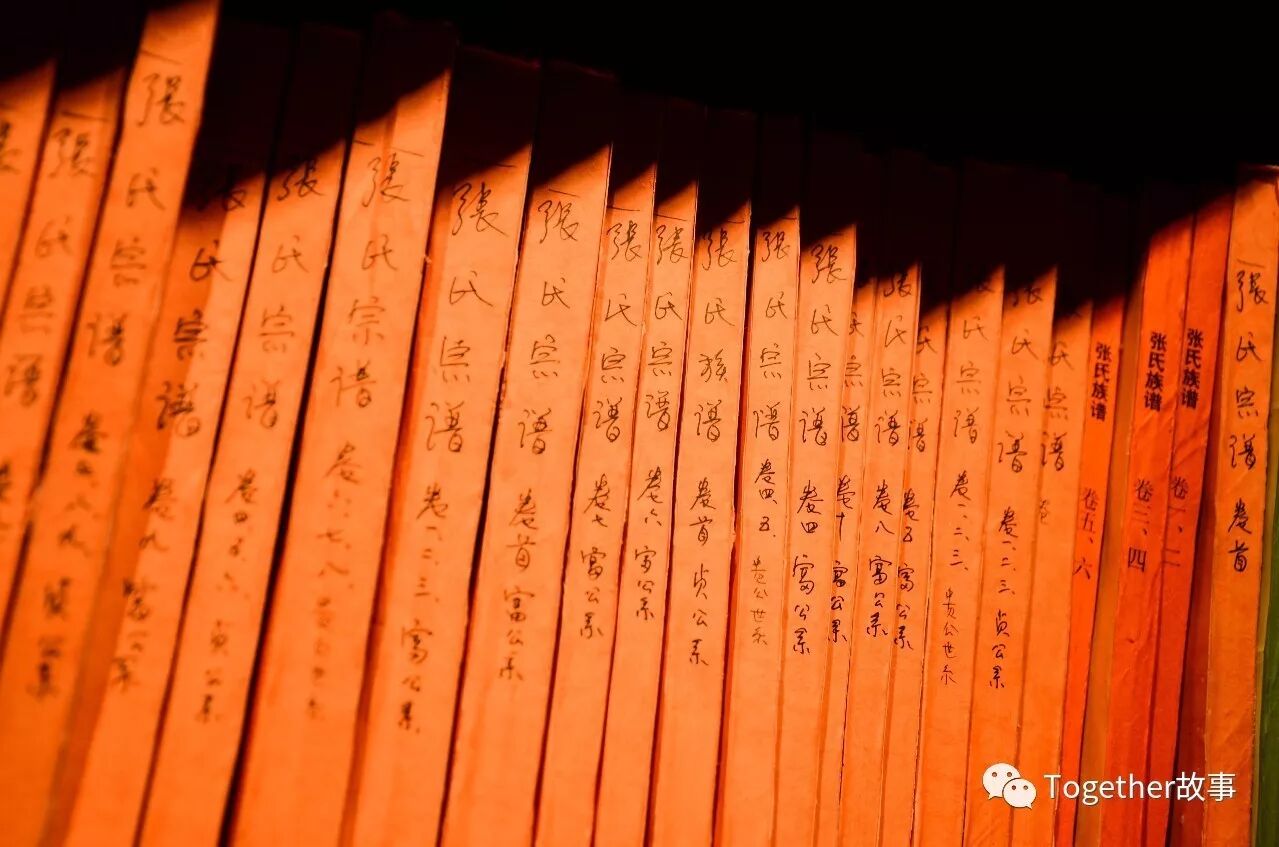 張氏宗谱
張氏宗谱
張氏宗谱 卷九
張氏宗谱 卷四、五、六 贞公系
張氏宗谱 卷六、七、八
張氏宗谱 卷一、二、三、富公系
張氏宗谱 卷首 富公系
張氏宗谱 卷七 富公系
張氏宗谱 卷六 富公系
張氏族谱 卷首 贞公系
張氏宗谱 卷四、五、贵公世系
張氏宗谱 卷四 富公系
氏宗谱 卷十 富公系
張氏宗谱 卷八 富公系
氏宗谱 卷五 富公系
氏宗谱 卷一、二、三、贵公世系
張氏宗谱 卷一、二、三、贞公系
氏宗谱 卷
张氏族谱 卷五、六
张氏族谱 卷三、四
张氏族谱 卷一、二
張氏宗谱 卷首
Together故事